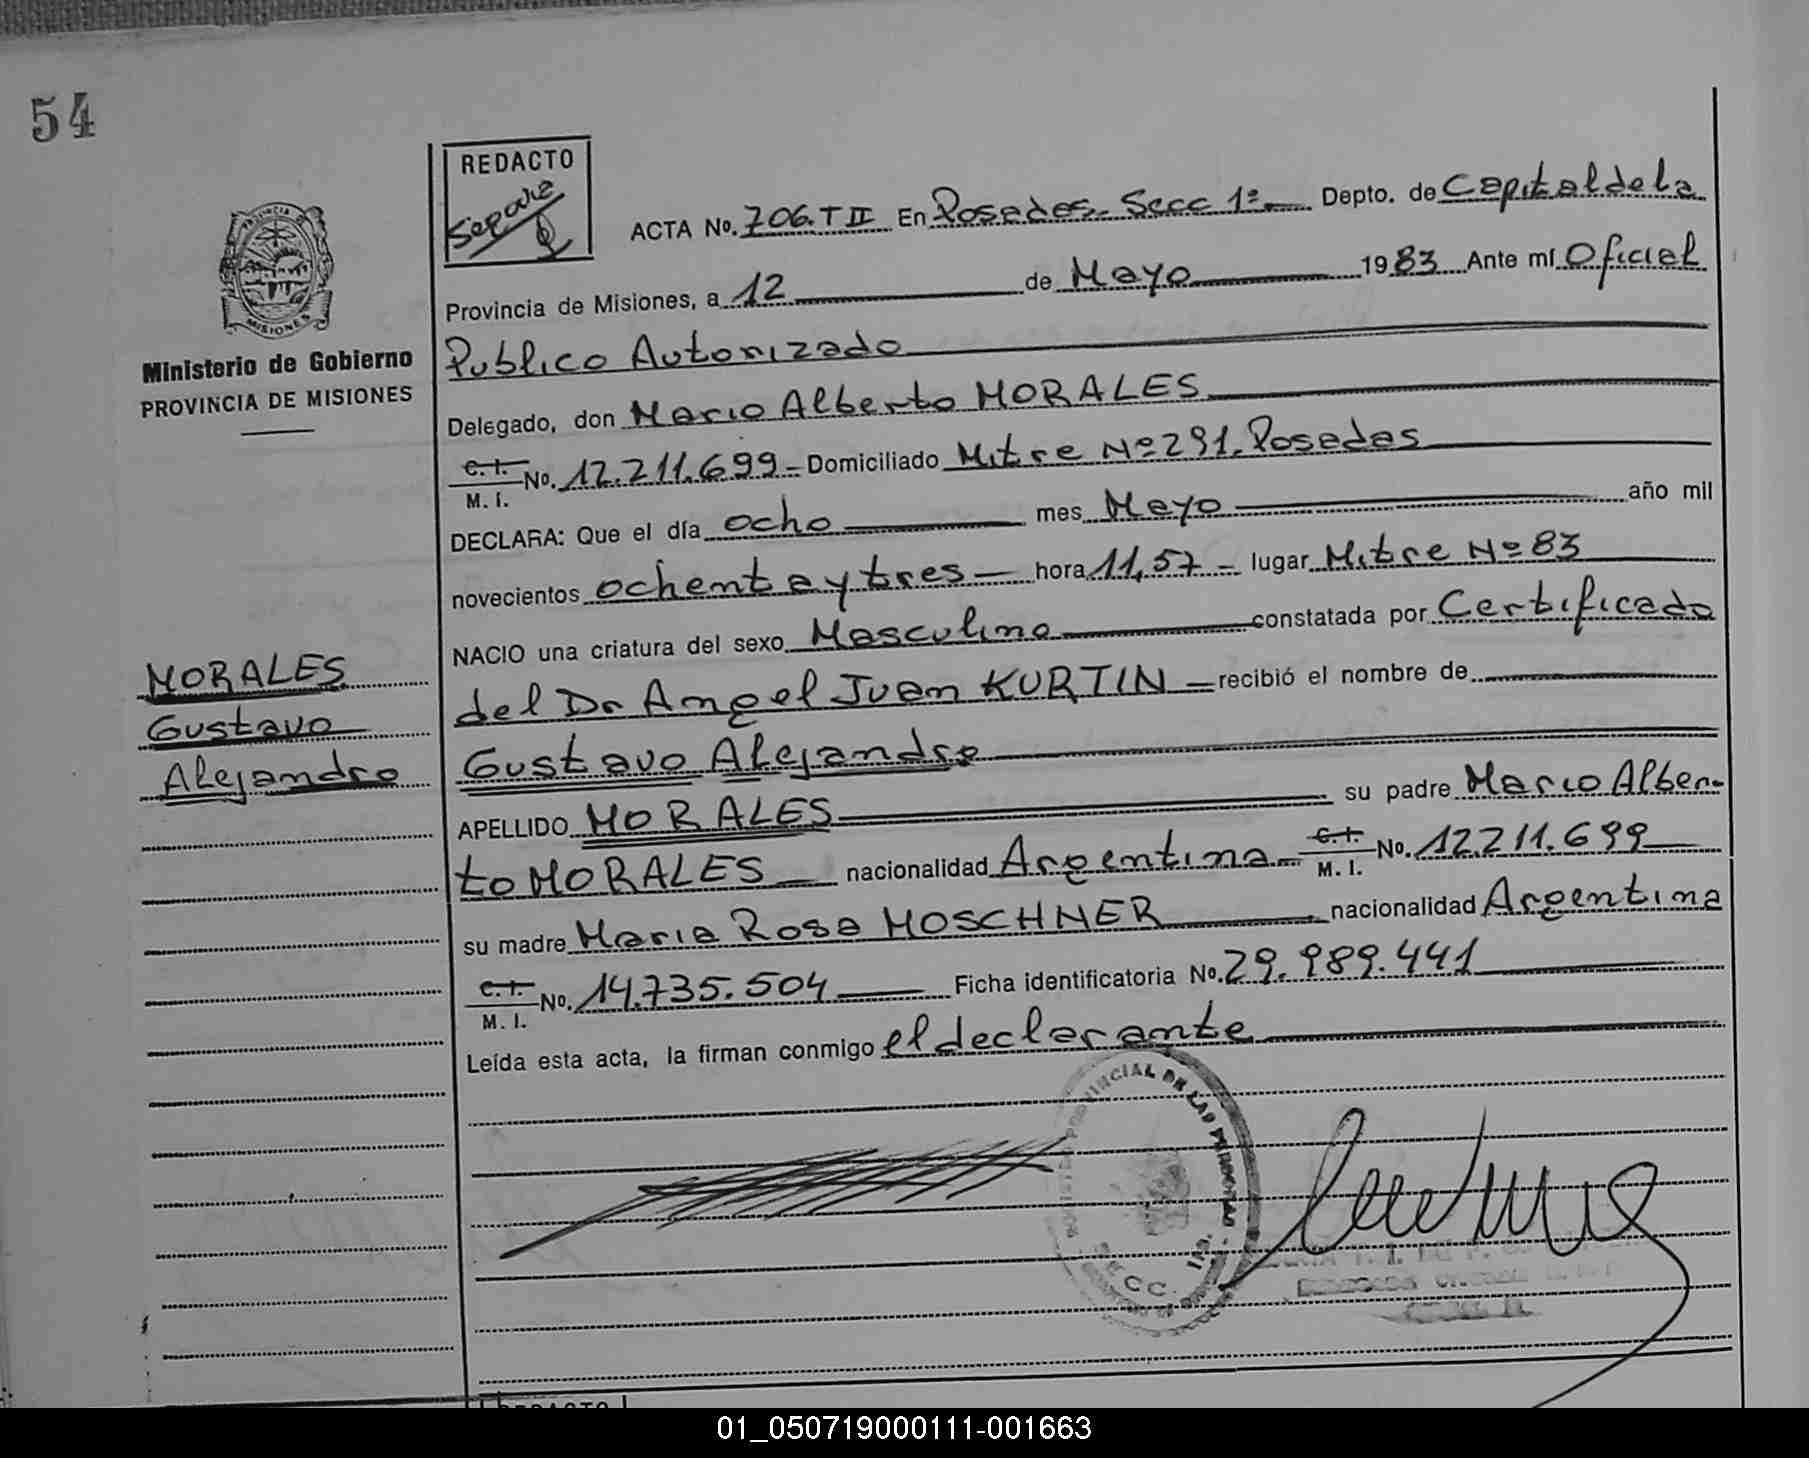 54
REDACTO
ACTA No. 706.T II En Posadas. Secc 1ª Depto. de Capital de la
Provincia de Misiones, a 12 de Mayo 1983 Ante mí Oficial
Publico Autorizado
Delegado, don Mario Alberto MORALES
C.I. M.I. No. 12.211.699 Domiciliado Mitre Nº 291. Posadas
DECLARA: Que el día ocho mes Mayo año mil
novecientos ochenta y tres hora 11,57 lugar Mitre Nº 83
NACIO una criatura del sexo Masculino constatada por Certificado
del Dr Angel Juan KURTIN recibió el nombre de
Gustavo Alejandro
APELLIDO MORALES su padre Mario Alber-
to MORALES nacionalidad Argentina C.I. M.I. No. 12.211.699
su madre Maria Rosa MOSCHNER nacionalidad Argentina
C.I. M.I. No. 14.735.504 Ficha identificatoria No. 29.989.441
Leída esta acta, la firman conmigo el declarante
PROVINCIA
MISIONES
Ministerio de Gobierno
PROVINCIA DE MISIONES
MORALES
Gustavo
Alejandro
PROVINCIAL DE LAS PERSONAS
REDACTO
01_050719000111-001663